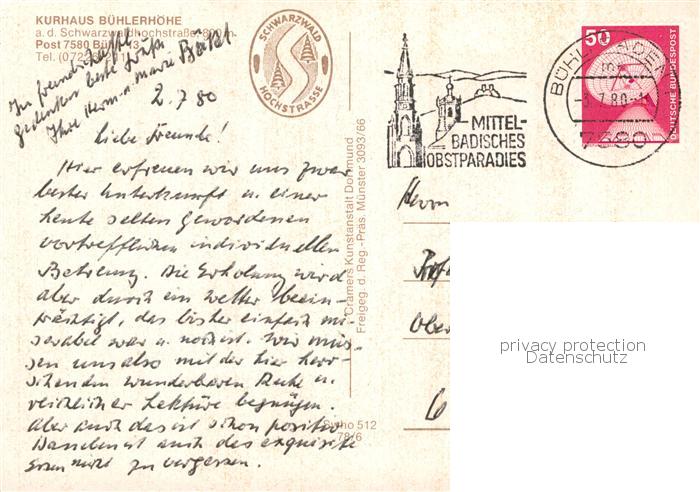 KURHAUS BÜHLERHÖHE
a. d. Schwarzwaldhochstraße 800 m
Post 7580 Bühl 13
Tel. (072
In freundschaftl.
Gedenken beste Grüße
Ihre Herm. u. Marie
SCHWARZWALD
HOCHSTRASSE
2.7.80
Liebe Freunde!
Hier erfreuen wir uns zwar
bester Unterkunft u. einer
heute selten gewordenen
vortrefflichen individuellen
Betreuung. Die Erholung wird
aber durch ein Wetter beein-
trächtigt, das bisher einfach mi-
serabel war u. noch ist. Wir müs-
sen uns also mit der hier herr-
schenden wunderbaren Ruhe u.
reichlicher Lektüre begnügen.
Aber auch das ist schon positiv.
Daneben ist auch das exquisite
Essen nicht zu vergessen.
Cramers Kunstanstalt Dortmund
Freigeg. d. Reg.-Präs. Münster 3093/66
512
78/6
MITTEL-
BADISCHES
OBSTPARADIES
BÜHL
7580
50
DEUTSCHE BUNDESPOST
Herrn
Ober
privacy protection
Datenschutz